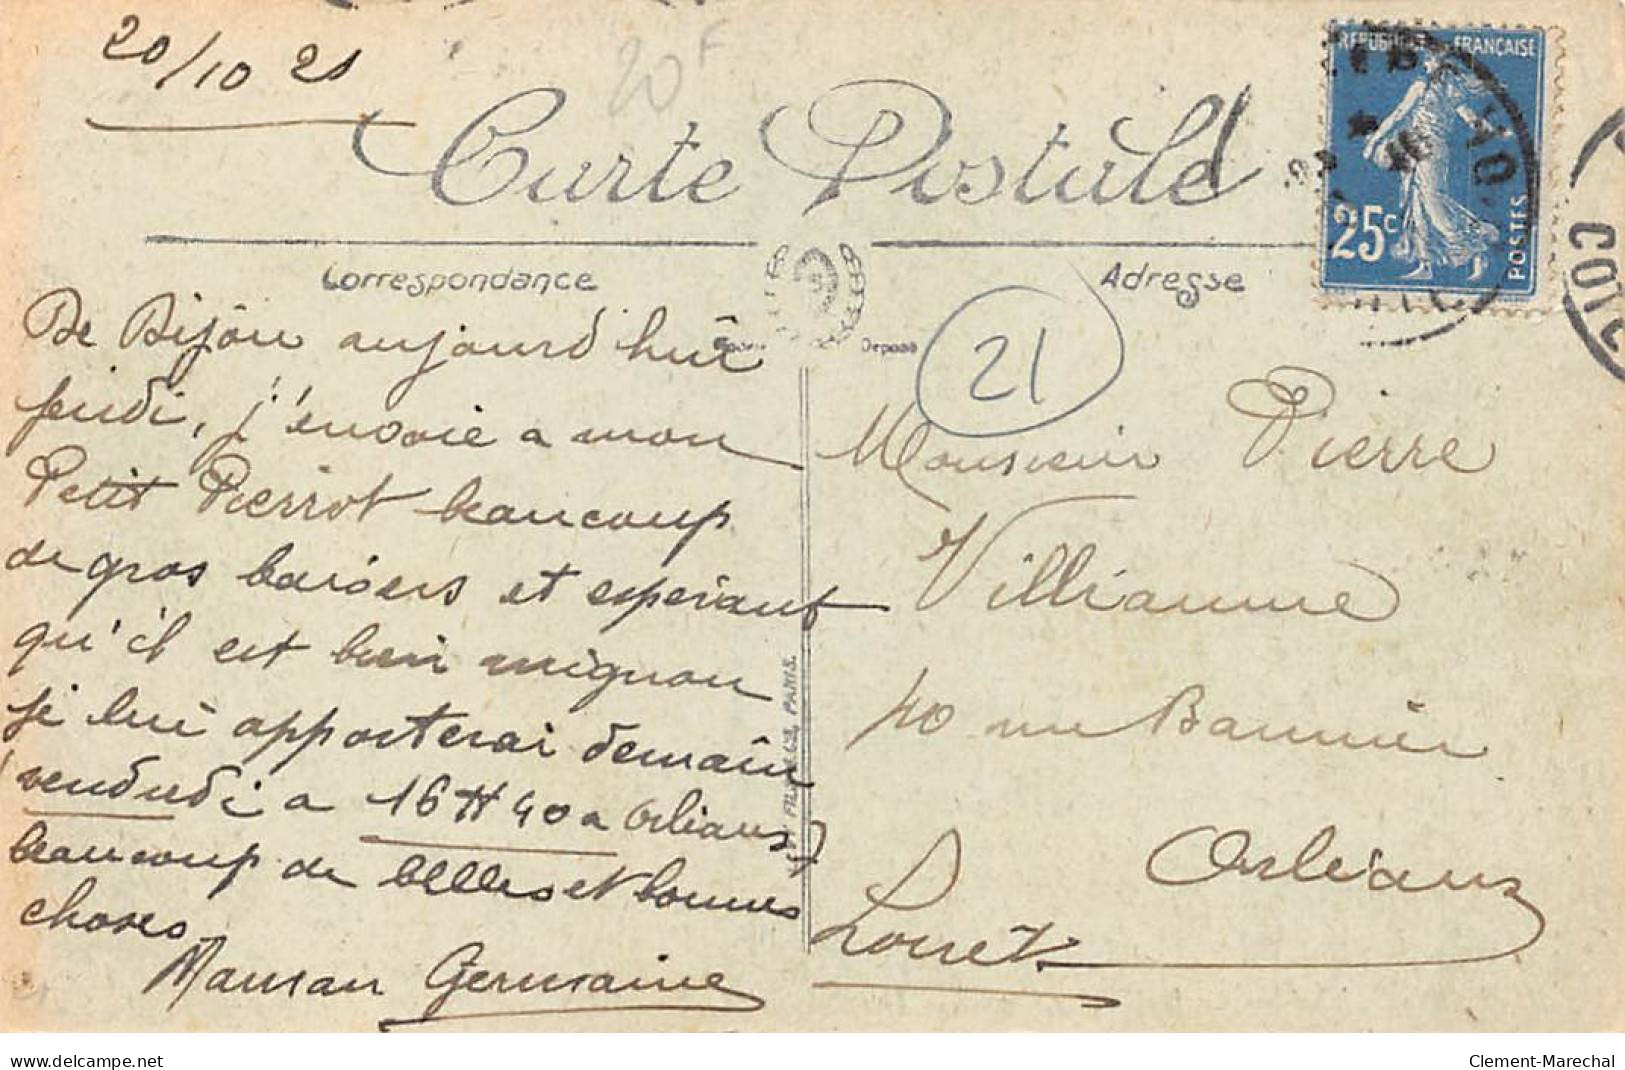 20/10 21
20F
Carte Postale
REPUBLIQUE FRANÇAISE
25c
POSTES
Correspondance
Adresse
21
De Dijôn aujourd'huî
jeudi, j'envoie a mon
Petit Pierrot beaucoup
de gros baisers et esperant
qu'il est bien mignon
je luî apporterai demaîn
vendredi a 16H40 a Orléans
beaucoup de belles et bonnes
choses
Maman Germaine
FILS
PARIS.
Monsieur Pierre
Villianne
40 rue Bannier
Orléans
Loiret
www.delcampe.net
Clement-Marechal